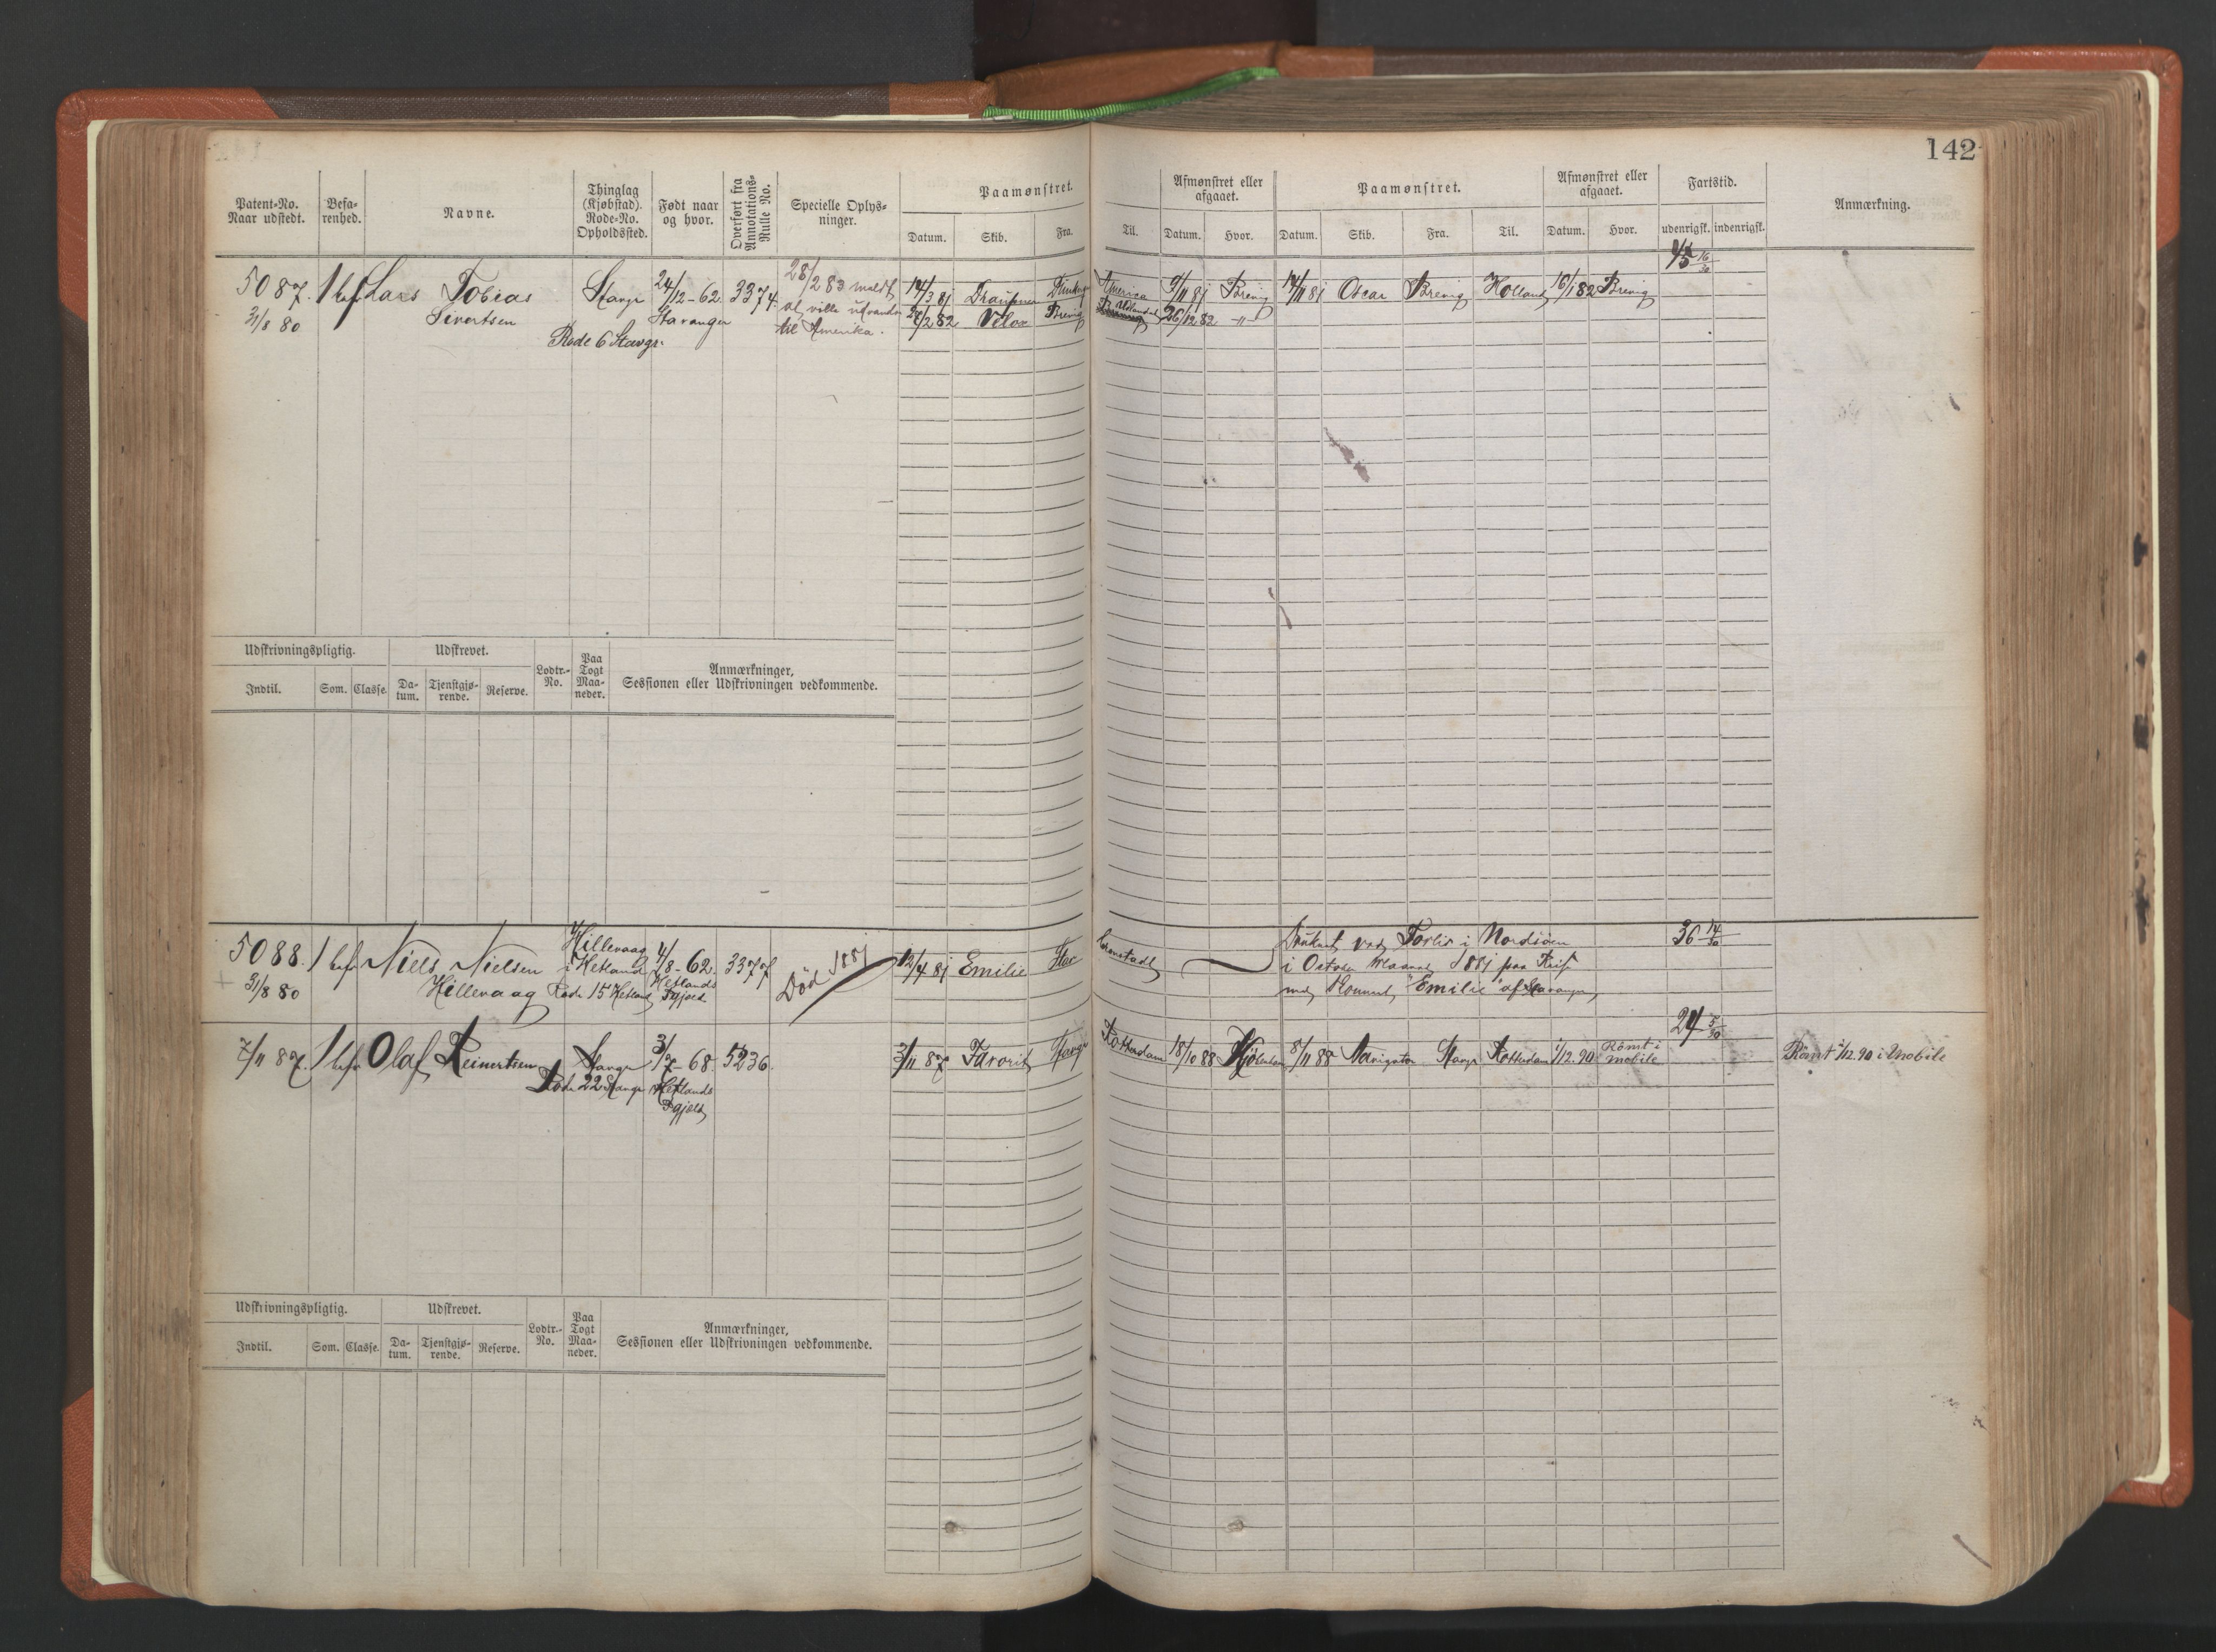 142
Patent-No. Naar udstedt.
Befa-renhed.
Navne.
Thinglag (Kjøbstad). Rode-No. Opholdssted.
Født naar og hvor.
Overført fra Annotations-Rulle No.
Specielle Oplys-ninger.
Paamønstret.
Datum. Skib. Fra. Til.
Afmønstret eller afgaaet.
Datum. Hvor.
Paamønstret.
Datum. Skib. Fra. Til.
Afmønstret eller afgaaet.
Datum. Hvor.
Fartstid.
udenrigsk. indenrigsk.
Anmærkning.
5087. 1 bef Lars Tobias Stangr 24/12-62 3374. 28/2 83 meldt 14/3 81 Draupner America 9/11 81 Brevig 14/11 81 Oscar Brevig Holland 16/1 82 Brevig
31/8 80 Sivertsen Stavanger at ville udvandre 28/2 82 Brevig 26/12 82 -"-
Rode 6 Stavgr. til Amerika.
Udskrivningspligtig. Udskrevet. Lodtr.-No. Paa Togt Maa-neder. Anmærkninger, Sessionen eller Udskrivningen vedkommende.
Indtil. Som. Classe. Da-tum. Tjenstgjø-rende. Reserve.
5088. 1 bef Niels Nielsen Hillevaag i Hetland 4/8-62. 3377 Død 1881 12/4 81 Emilie Cronstadt Druknet ved Forlis i Nordsöen 36 14/30
31/8 80 Hillevaag Rode 15 Hetland Hetlands Pgjeld i October Maaned 1881 paa Reise
med Skonnert "Emilie" af Stavanger
24 5/30
7/11 87. 1 bef Olaf Reinertsen Stangr 3/7-68. 5236. 3/11 87 Favorit Stavgr Rotterdam 18/10 88 8/11 88 Navigator Stavgr Rotterdam 1/12.90 Römt i Mobile Römt 1/12.90 i Mobile
Rode 22 Stavgr Hetlands Pgjeld
Udskrivningspligtig. Udskrevet. Lodtr.-No. Paa Togt Maa-neder. Anmærkninger, Sessionen eller Udskrivningen vedkommende.
Indtil. Som. Classe. Da-tum. Tjenstgjø-rende. Reserve.